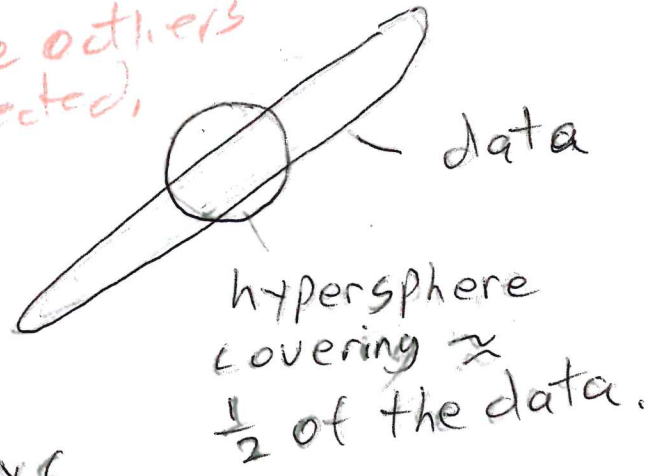 outliers
data
hypersphere
covering ≈
1/2 of the data.